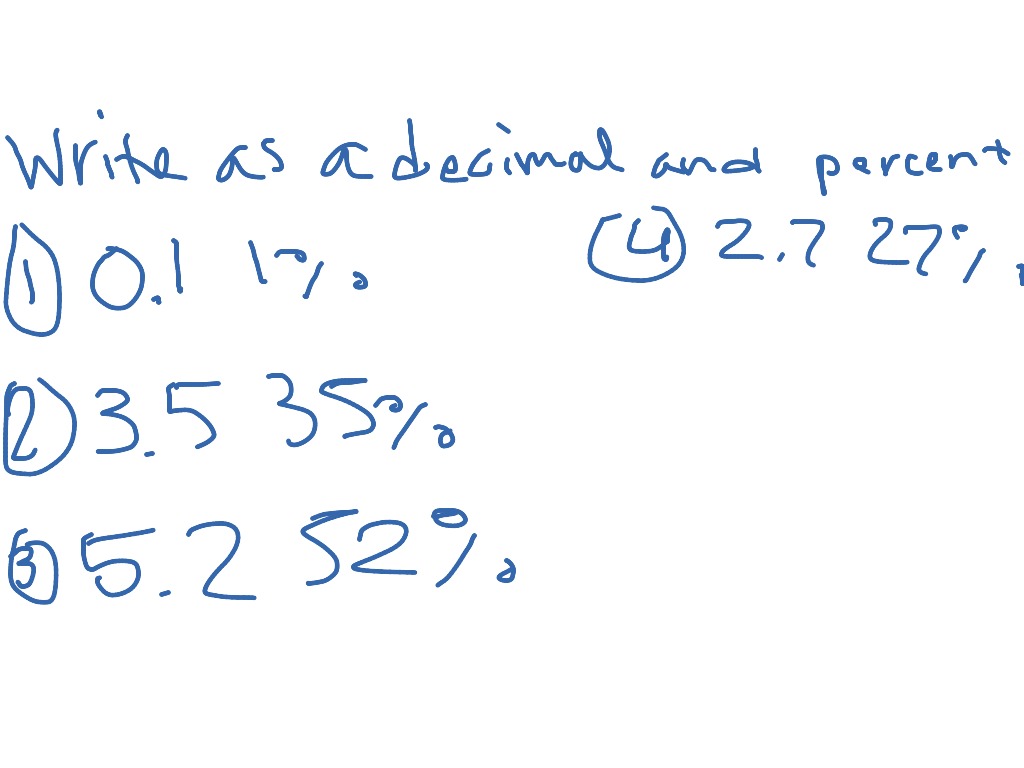 Write as a decimal and percent
① 0.1 1%
④ 2.7 27%
② 3.5 35%
③ 5.2 52%